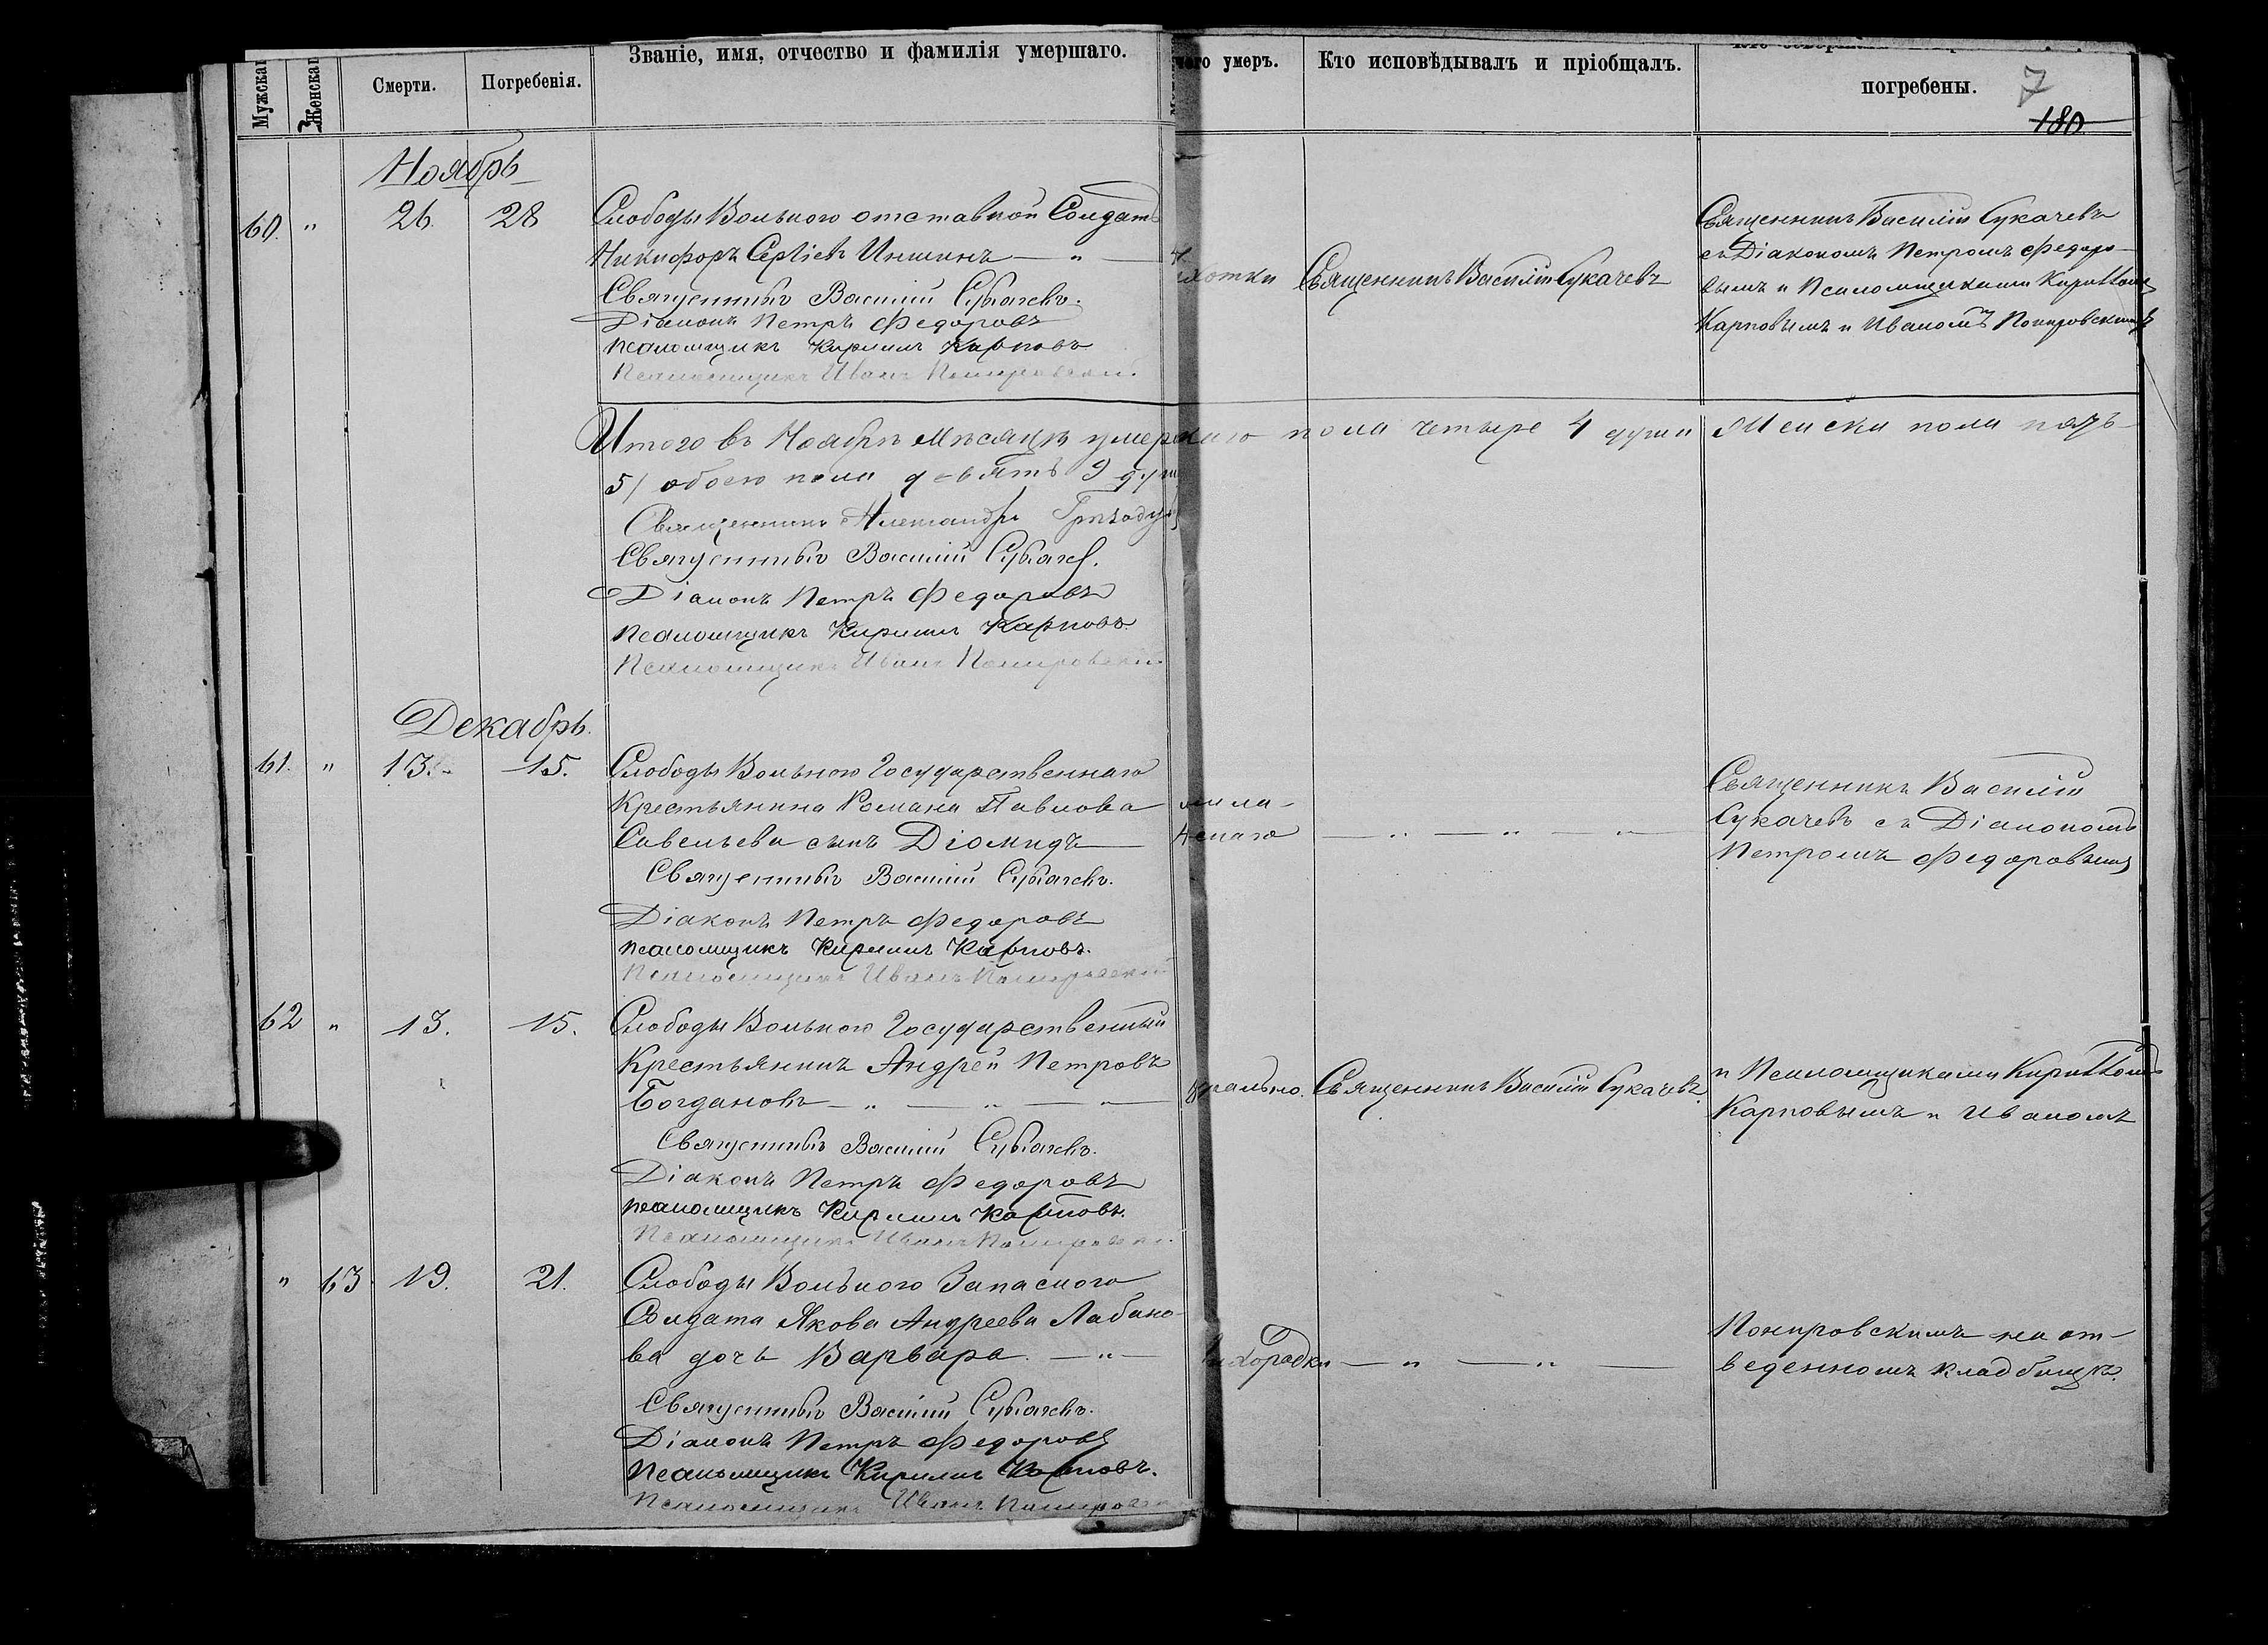 Мужскаг
Женскаг
Смерти.
Погребенія.
Званіе, имя, отчество и фамилія умершаго.
чего умеръ.
Кто исповѣдывалъ и пріобщалъ.
погребены.
7
180
Ноябрь
60. " 26. 28 Слободы Вольного отставной Солдатъ
Никифоръ Сергіевъ — " —
Священникъ Василій Сукачевъ.
Діаконъ Петръ Федоровъ
Псаломщикъ Кирилл Карповъ
Псаломщикъ Иванъ Покировскій.
хотки
Священникъ Василій Сукачевъ
Священникъ Василій Сукачевъ
съ Діакономъ Петромъ Федоро-
вымъ и Псаломщиками Кирилломъ
Карповымъ и Иваномъ Покировскимъ
Итого въ Ноябрѣ Мѣсяцѣ умер пола четыре 4 души Женска пола пять
5/ обоего пола девять 9 душ
Священникъ Александръ
Священникъ Василій Сукачев.
Діаконъ Петръ Федоровъ
Псаломщикъ Кирилл Карповъ.
Псаломщикъ Иванъ Покировскій.
Декабрь.
61. " 13. 15. Слободы Вольного Государственнаго
Крестьянина Романа Павлова
Савельева сынъ Діомидъ —
Священникъ Василій Сукачевъ.
Діаконъ Петръ Федоровъ
Псаломщикъ Кирилл Карповъ.
Псаломщикъ Иванъ Покировскій
— " — " — "
Священникъ Василій
Сукачевъ съ Діакономъ
Петромъ Федоровымъ
62 " 13. 15. Слободы Вольного Государственный
Крестьянинъ Андрей Петровъ
Богдановъ — " — " — " —
Священникъ Василій Сукачевъ.
Діаконъ Петръ Федоровъ
Псаломщикъ Кирилл Карповъ.
Псаломщикъ Иванъ Покировскій.
Священникъ Василій Сукачевъ.
и Псаломщиками Кирилломъ
Карповымъ и Иваномъ
" 63 19. 21. Слободы Вольного Запасного
Солдата Якова Андреева Лабано-
ва дочь Варвара. — " —
Священникъ Василій Сукачевъ.
Діаконъ Петръ Федоровъ
Псаломщикъ Кирилл Карповъ.
Псаломщикъ Иванъ Покировс
лихорадки — " — " —
Покировскимъ на от-
веденномъ кладбищѣ.